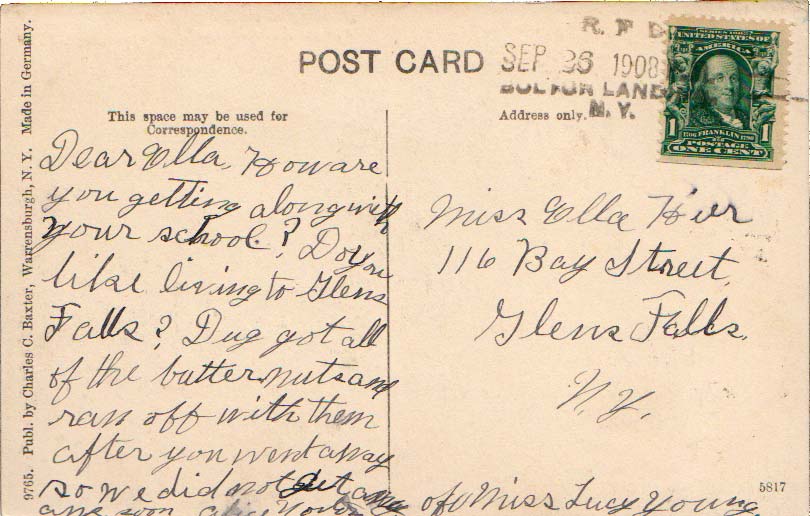 R. F. D.
SEP 26 1908
BOLTON LAND
N.Y.
SERIES 1902
UNITED STATES OF
AMERICA
1706 FRANKLIN 1790
1 1
POSTAGE
ONE CENT
POST CARD
This space may be used for
Correspondence.
Address only.
Dear Ella, How are
you getting along with
your school? Do you
like living to Glens
Falls? Dug got all
of the butternuts and
ran off with them
after you went away
so we did not get any
of Miss Lucy Young
Miss Ella
116 Bay Street,
Glens Falls,
N.Y.
9765. Publ. by Charles C. Baxter, Warrensburgh, N.Y. Made in Germany.
5817